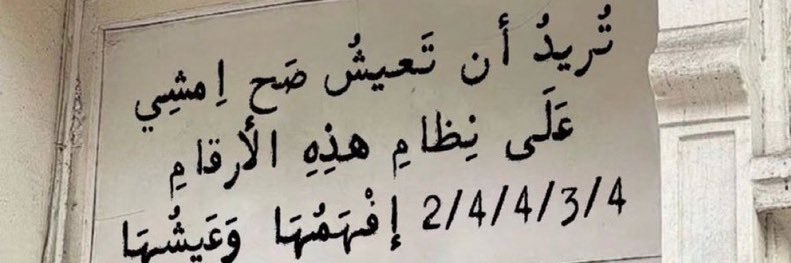 تُريدُ أن تَعيشُ صَح اِمشِي
عَلَى نِظامِ هذِهِ الأرقامِ
2/4/4/3/4 إفْهَمُهَا وَعَيشُهَا